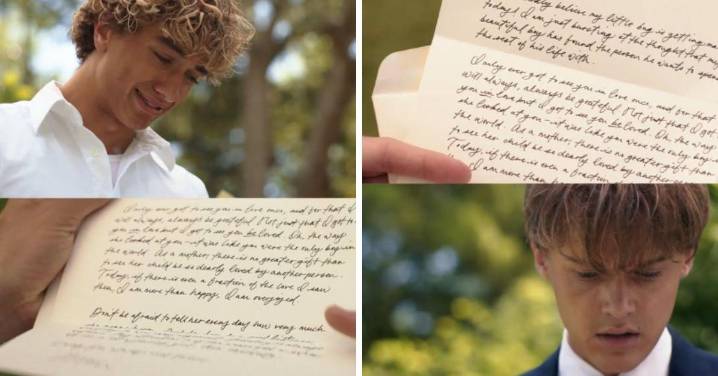 believe my little boy is getting
today. I am just bursting at the thought that my
beautiful boy has found the person he wants to spend
the rest of his life with.
I only ever got to see you in love once, and for that
will always, always be grateful. Not just that I got
you in love but I got to see you be loved. Oh, the way
she looked at you - it was like you were the only boy in
the world. As a mother, there is no greater gift than
to see her child be so dearly loved by another
Today, if there is even a fraction
I am more than
I only ever got to see you in love once, and for that I
will always, always be grateful. Not just that I got to
you in love but I got to see you be loved. Oh, the way
she looked at you - it was like you were the only boy in
the world. As a mother, there is no greater gift than
to see her child be so dearly loved by another person.
Today, if there is even a fraction of the love I saw
then, I am more than happy, I am overjoyed.
Don't be afraid to tell her every day how very much